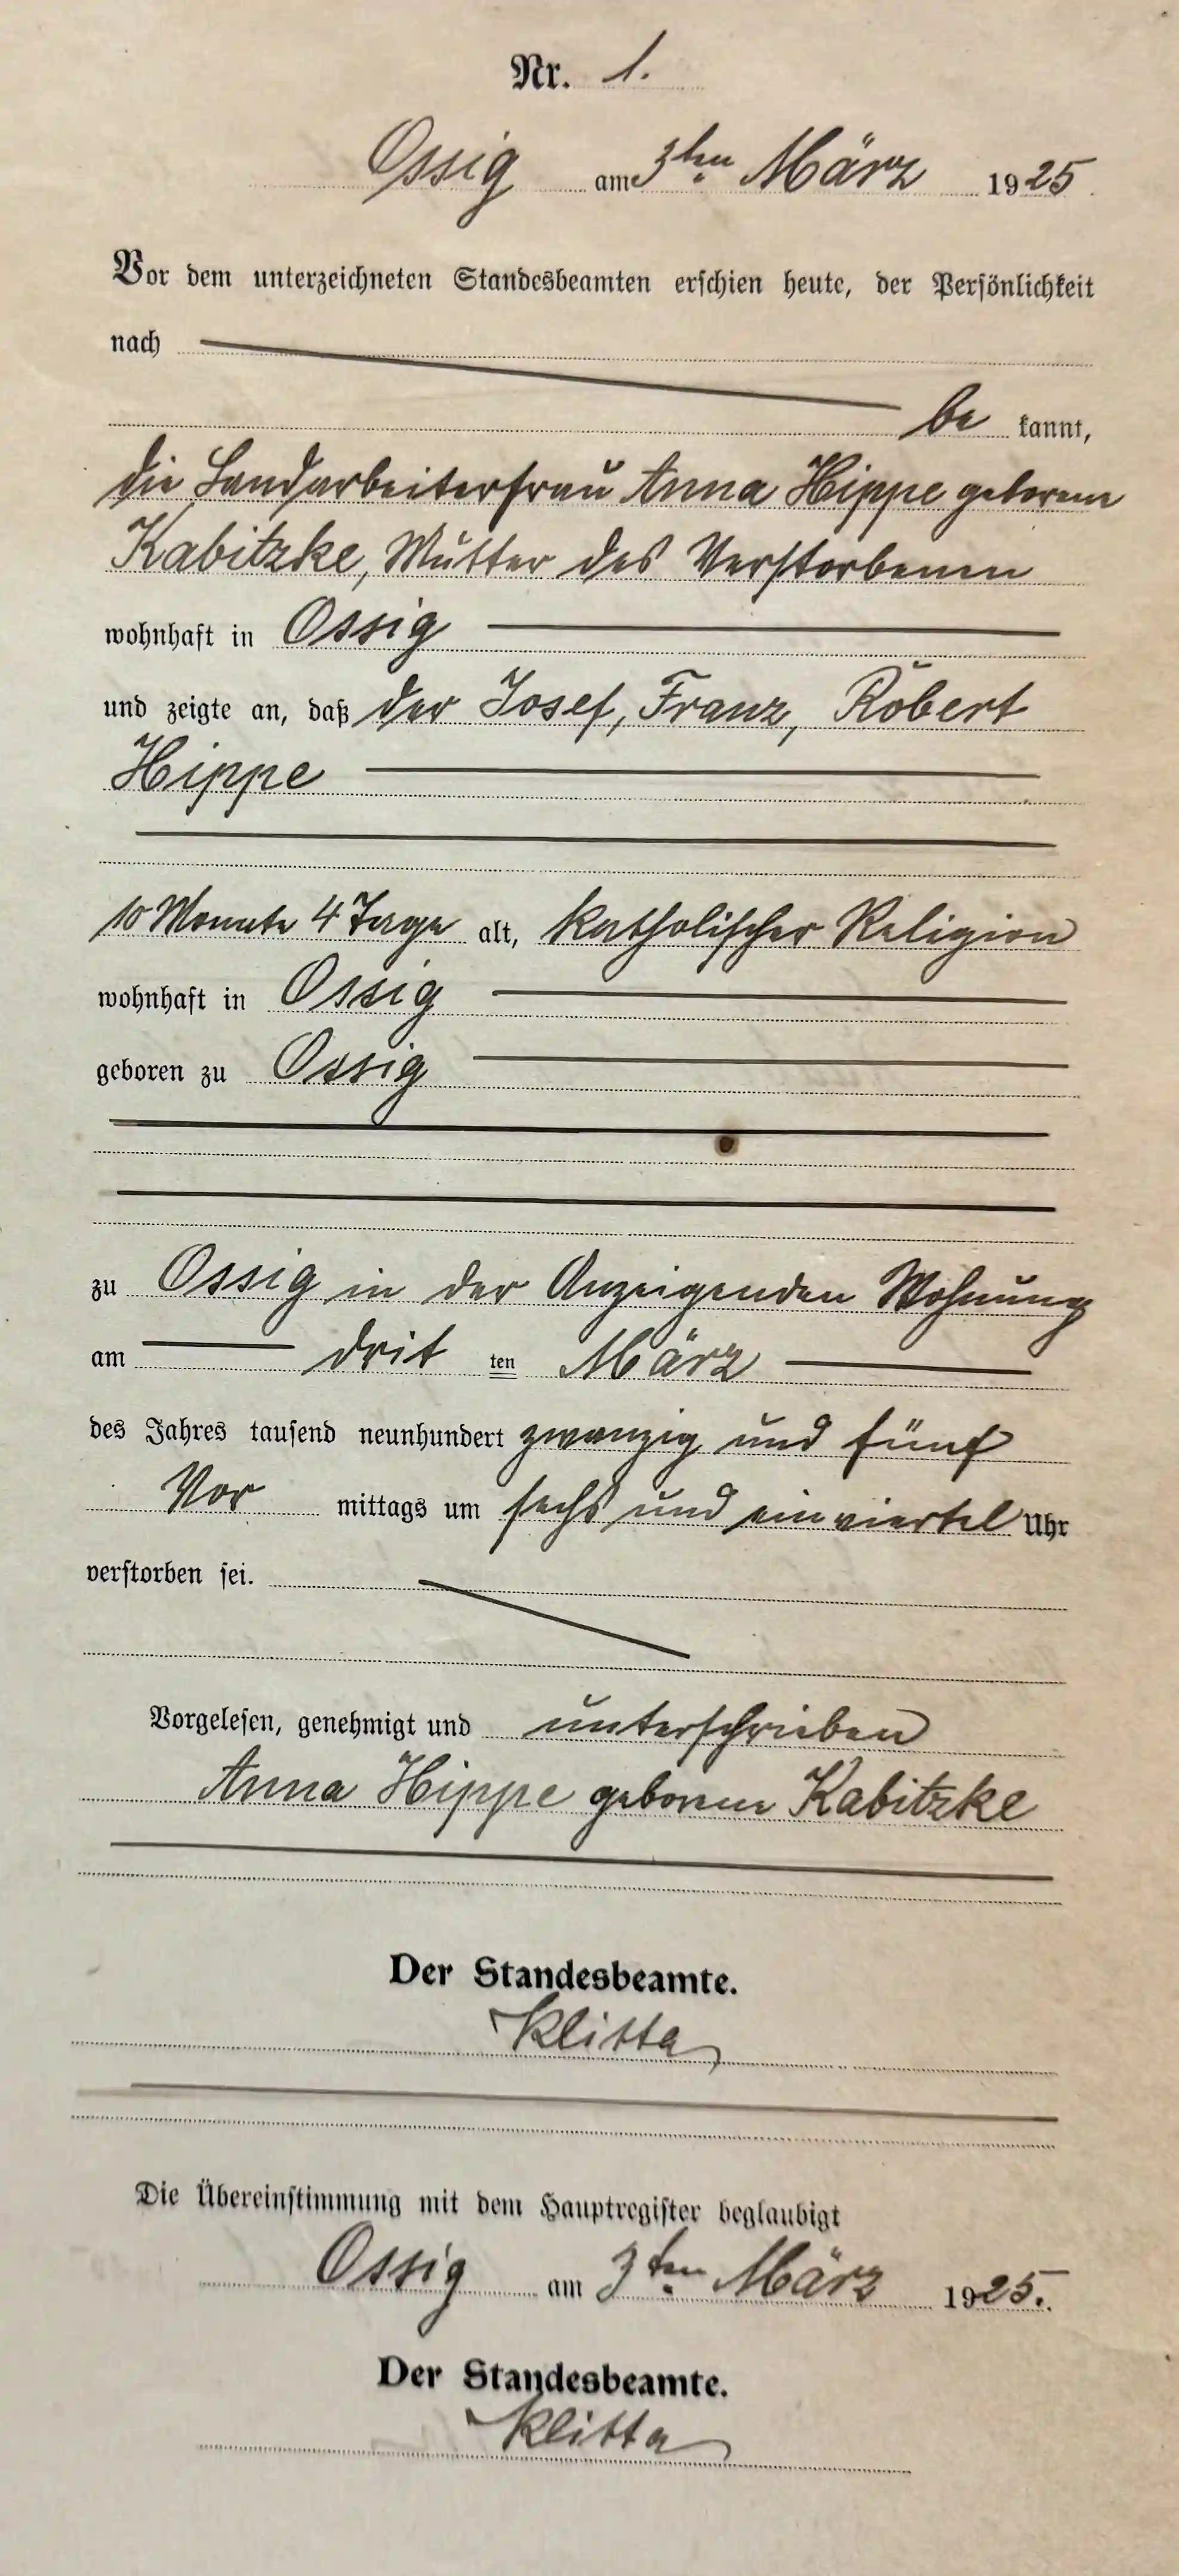 Nr. 1.
Ossig am 3ten März 1925
Vor dem unterzeichneten Standesbeamten erschien heute, der Persönlichkeit
nach
be kannt,
die Landarbeiterfrau Anna Hippe geborene
Kabitzke, Mutter des Verstorbenen
wohnhaft in Ossig
und zeigte an, daß der Josef, Franz, Robert
Hippe
10 Monate 4 Tage alt, katholischer Religion
wohnhaft in Ossig
geboren zu Ossig
zu Ossig in der Anzeigenden Wohnung
am drit ten März
des Jahres tausend neunhundert zwanzig und fünf
Vor mittags um sechs und ein viertel Uhr
verstorben sei.
Vorgelesen, genehmigt und unterschrieben
Anna Hippe geborene Kabitzke
Der Standesbeamte.
Klitta
Die Übereinstimmung mit dem Hauptregister beglaubigt
Ossig am 3ten März 1925.
Der Standesbeamte.
Klitta